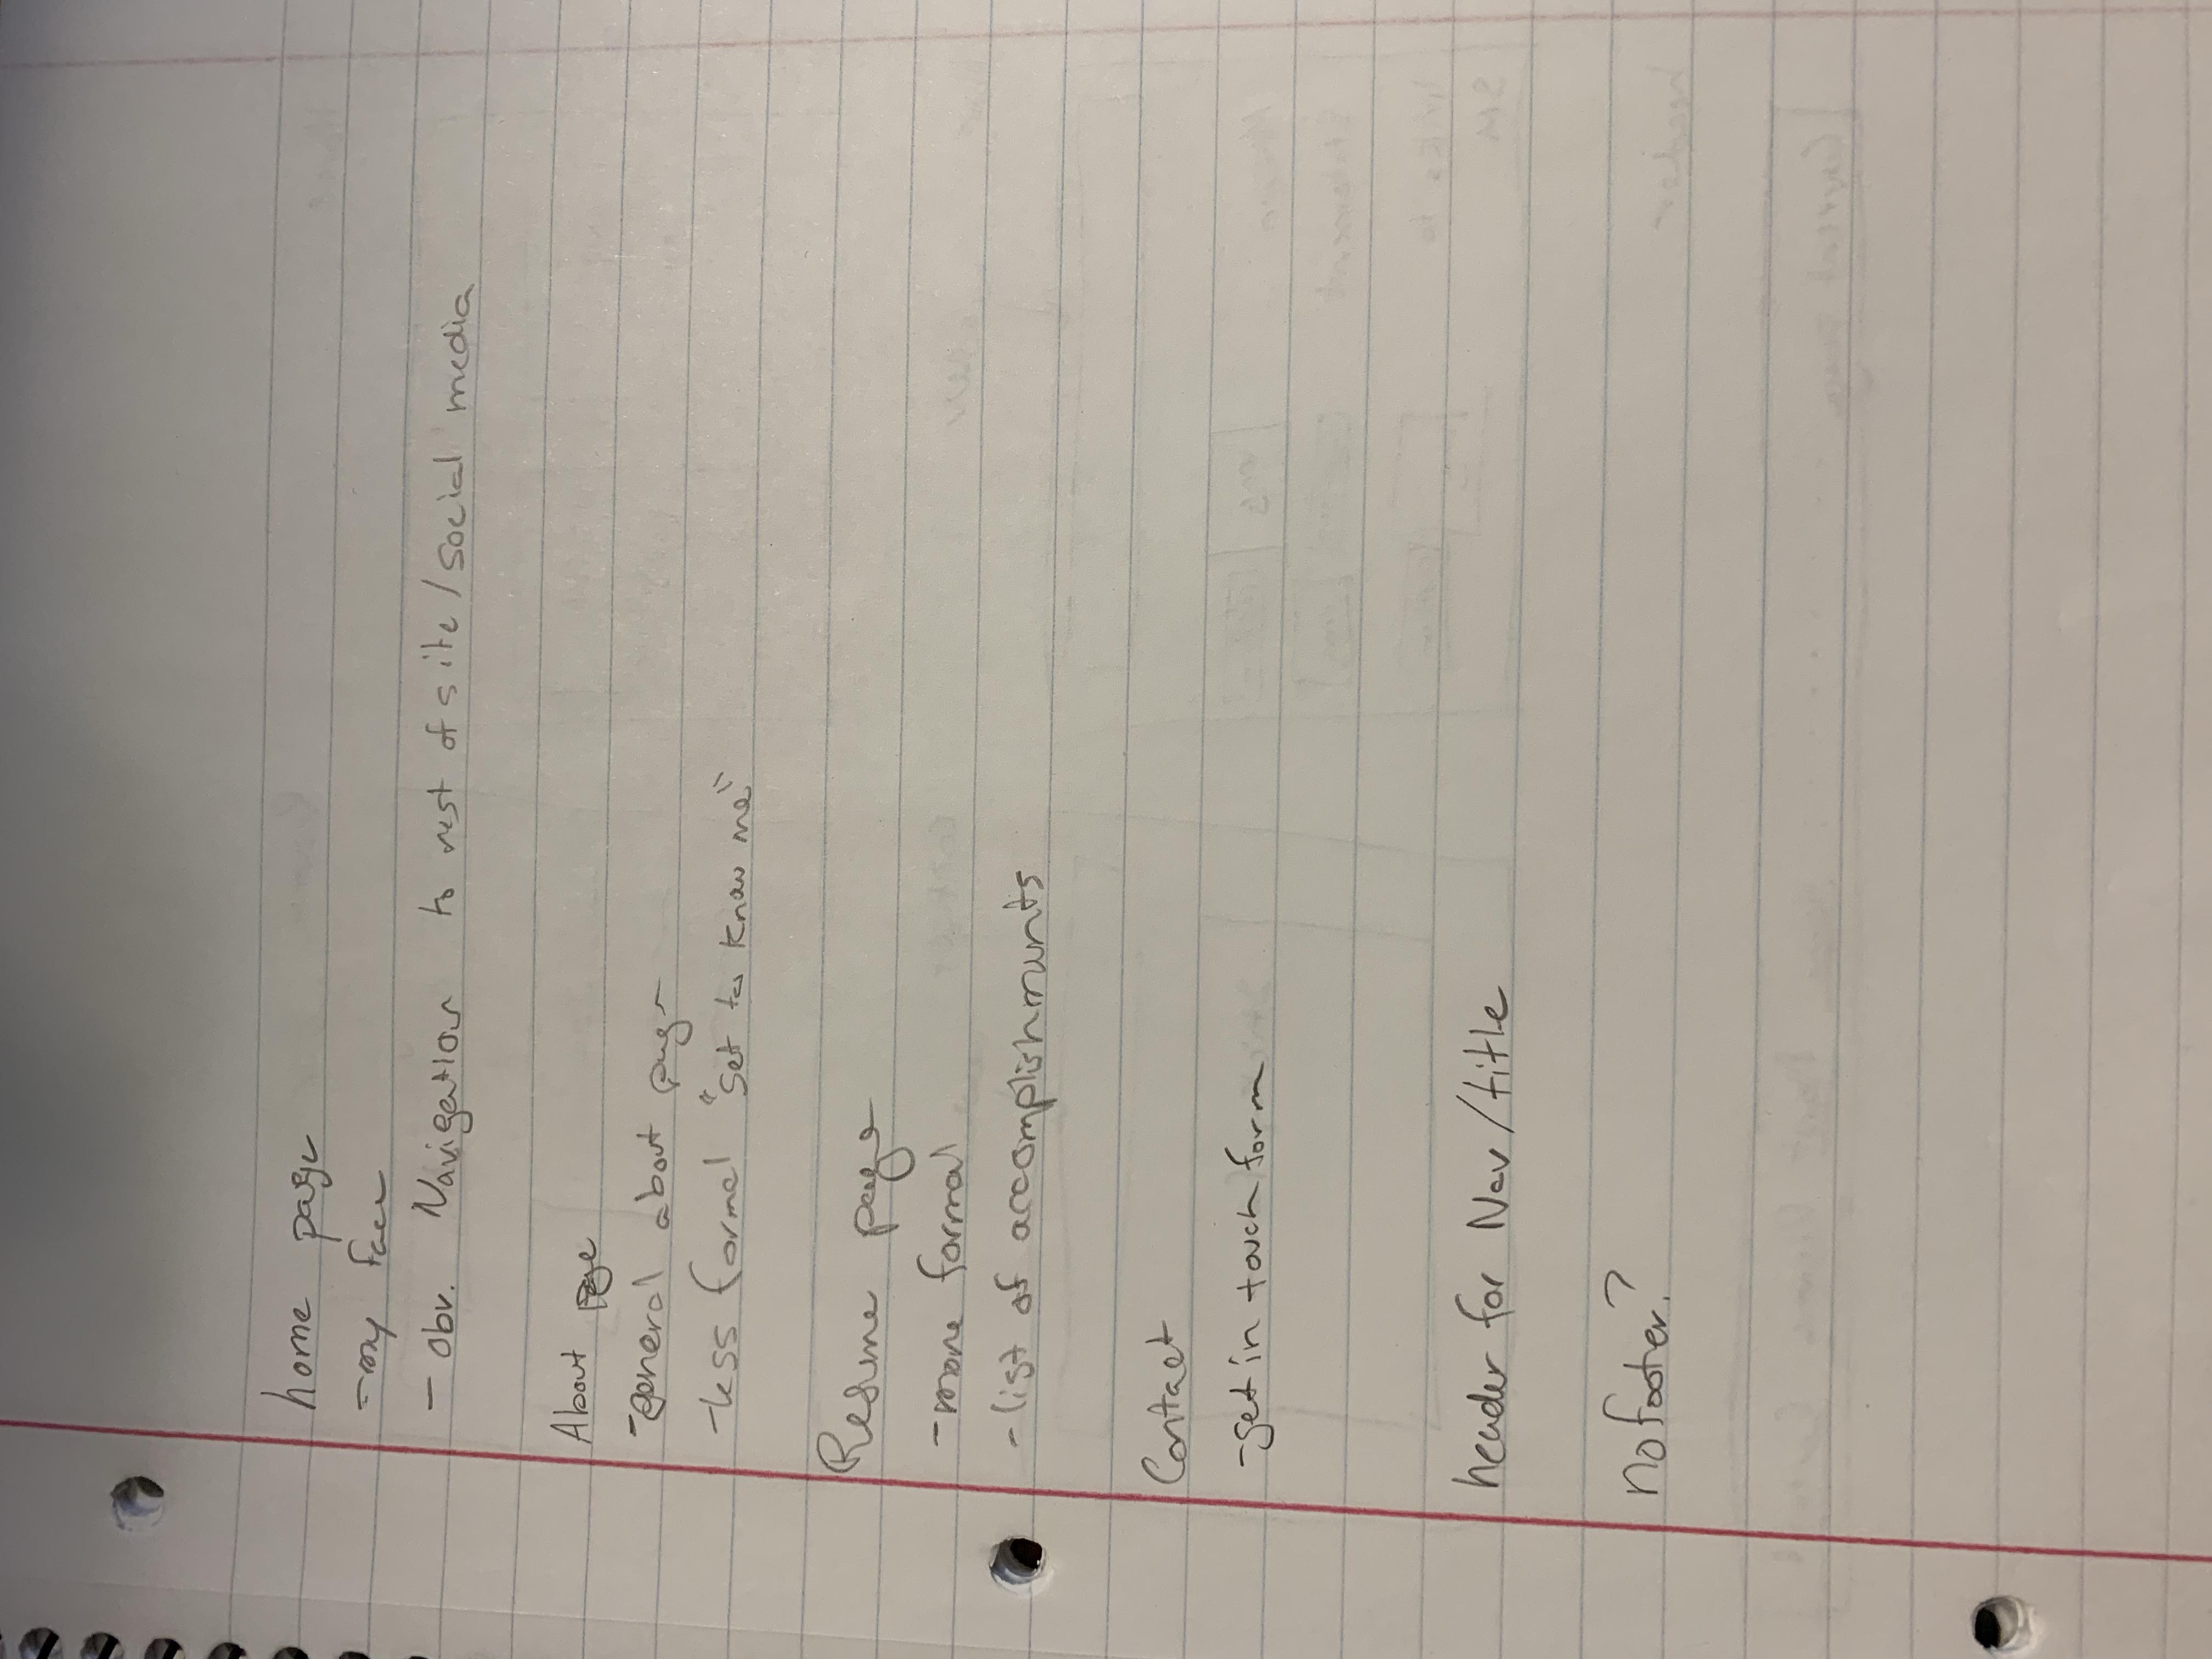 home page
- my face
- obv. Navigation to rest of site / social media
About Page
- general about page
- less formal "get to know me"
Resume page
- more formal
- list of accomplishments
Contact
- get in touch form
header for Nav/title
no footer?